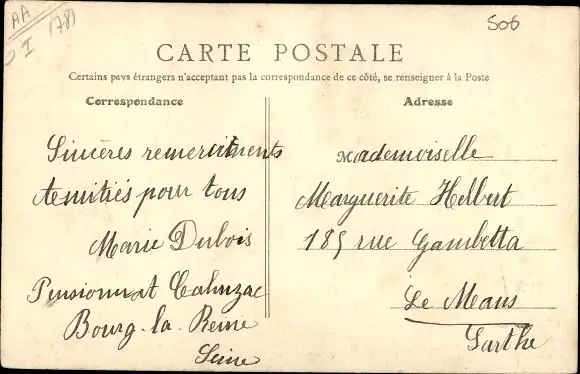 AA
(78)
506
CARTE POSTALE
Certains pays étrangers n'acceptant pas la correspondance de ce côté, se renseigner à la Poste
Correspondance
Sincères remerciements
et amitiés pour tous
Marie Dubois
Pensionnat Cahuzac
Bourg-la-Reine
Seine
Adresse
Mademoiselle
Marguerite Helbert
185 rue Gambetta
Le Mans
Sarthe